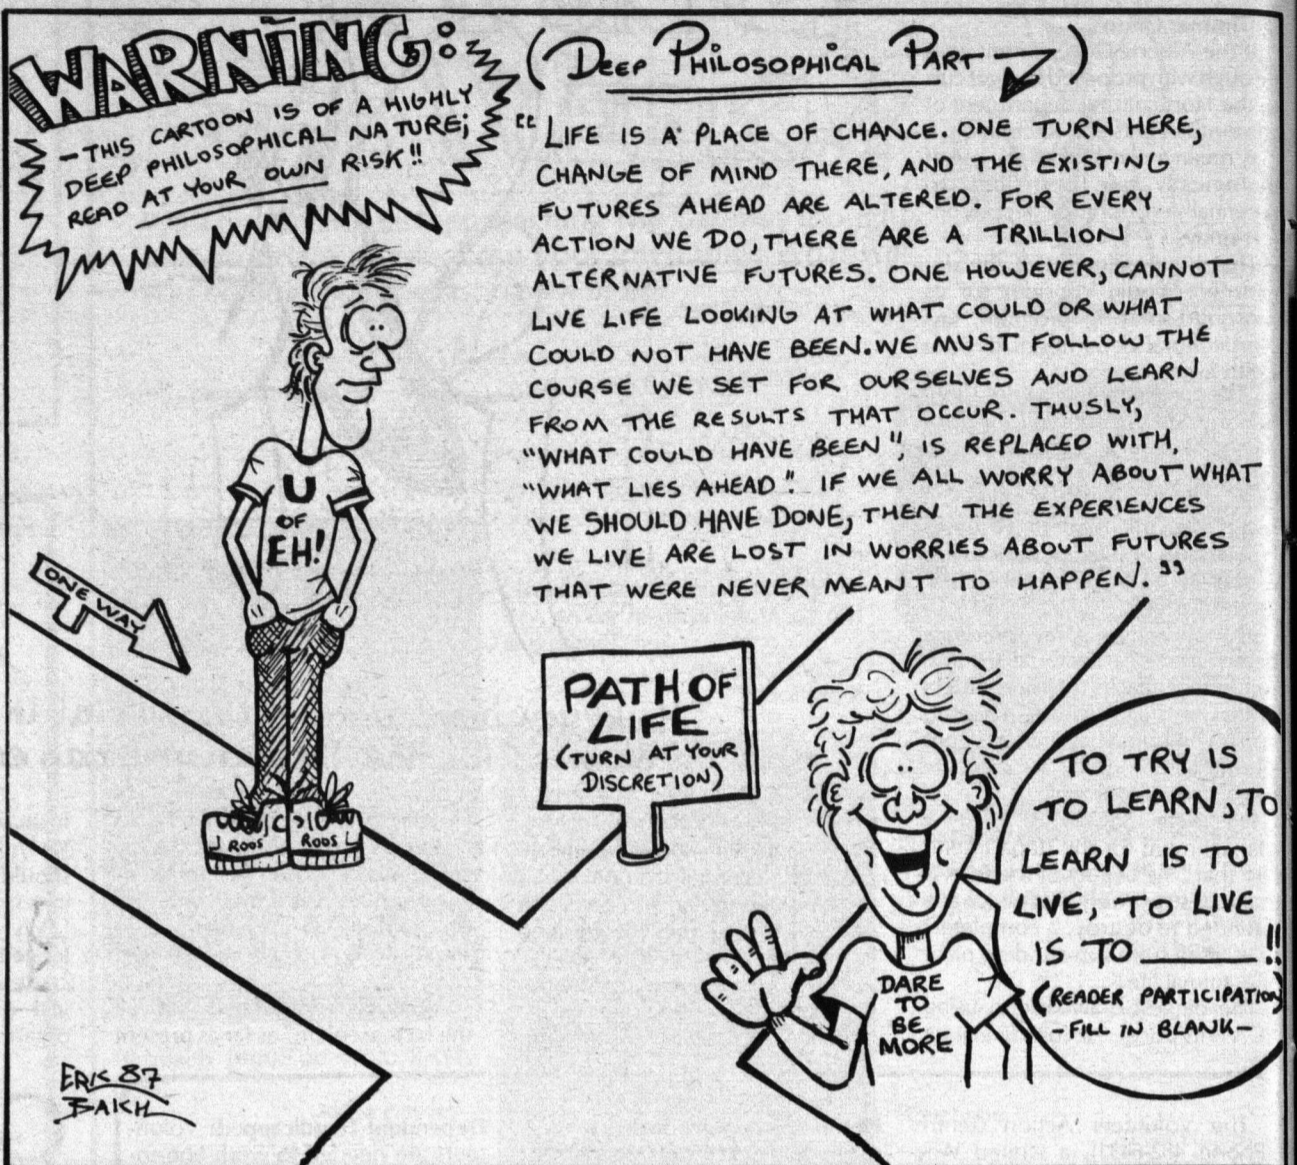 WARNING:
- THIS CARTOON IS OF A HIGHLY
DEEP PHILOSOPHICAL NATURE;
READ AT YOUR OWN RISK!!
(DEEP PHILOSOPHICAL PART)
"LIFE IS A PLACE OF CHANCE. ONE TURN HERE,
CHANGE OF MIND THERE, AND THE EXISTING
FUTURES AHEAD ARE ALTERED. FOR EVERY
ACTION WE DO, THERE ARE A TRILLION
ALTERNATIVE FUTURES. ONE HOWEVER, CANNOT
LIVE LIFE LOOKING AT WHAT COULD OR WHAT
COULD NOT HAVE BEEN. WE MUST FOLLOW THE
COURSE WE SET FOR OURSELVES AND LEARN
FROM THE RESULTS THAT OCCUR. THUSLY,
"WHAT COULD HAVE BEEN", IS REPLACED WITH,
"WHAT LIES AHEAD". IF WE ALL WORRY ABOUT WHAT
WE SHOULD HAVE DONE, THEN THE EXPERIENCES
WE LIVE ARE LOST IN WORRIES ABOUT FUTURES
THAT WERE NEVER MEANT TO HAPPEN."
U
OF
EH!
ONE WAY
ROOS ROOS
PATH OF
LIFE
(TURN AT YOUR
DISCRETION)
TO TRY IS
TO LEARN, TO
LEARN IS TO
LIVE, TO LIVE
IS TO ______!!
(READER PARTICIPATION)
- FILL IN BLANK -
DARE
TO
BE
MORE
ERIK 87
BAKH